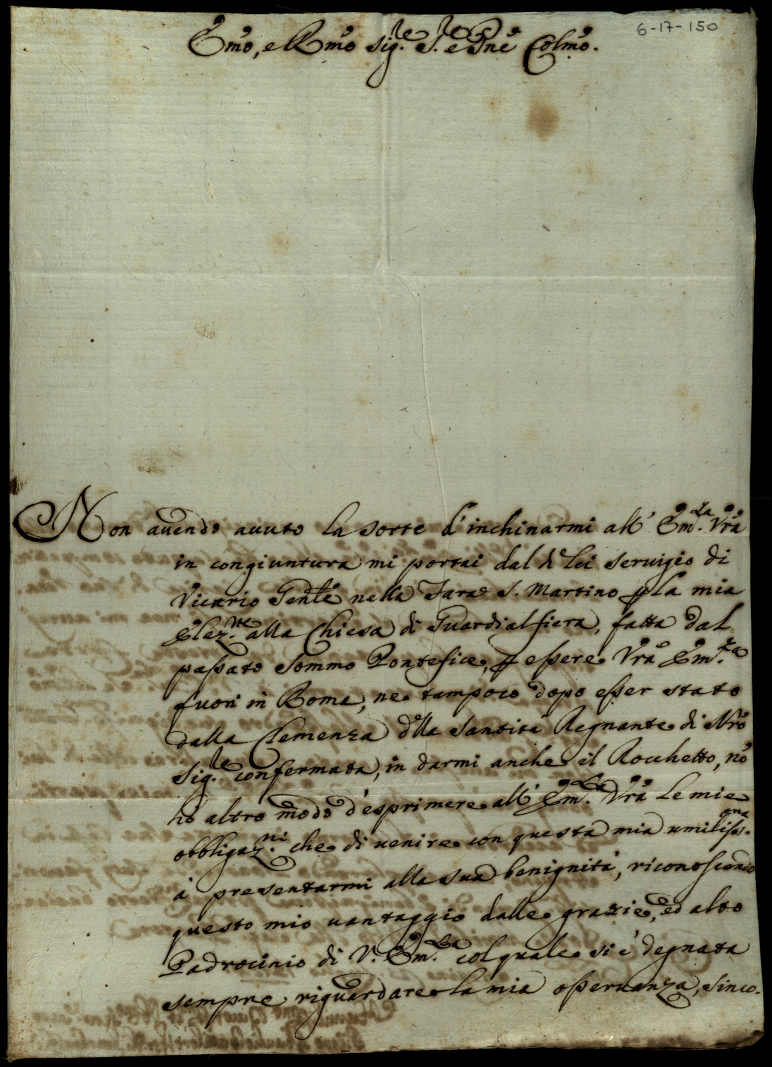 6-17-150
Em̃o, e Rm̃o Sig.re S.re e Pñe Colm̃o.
Non avendo avuto la sorte d'inchinarmi all' Em.za Vr̃a
in congiuntura mi portai dal di lei servigio di
Vicario Gen̄le nella S. Martino ꝑ la mia
Elez.ne alla Chiesa di Guardialfiera, fatta dal
passato Sommo Pontefice, ꝑ essere Vr̃a Em.za
fuori in Roma, ne tampoco dopo esser stato
dalla Clemenza d'lla Santità Regnante di Nr̃o
Sig.re confermata, in darmi anche il Rocchetto, nõ
hò altro modo d'esprimere all' Em.za Vr̃a le mie
obbligaz.ni che di venire con questa mia umiliss.ma
à presentarmi alla sua benignità, riconoscendo
questo mio vantaggio dalle grazie, ed alto
Padrocinio di V. Em.za col quale si è degnata
sempre riguardare la mia osservanza, sinco-